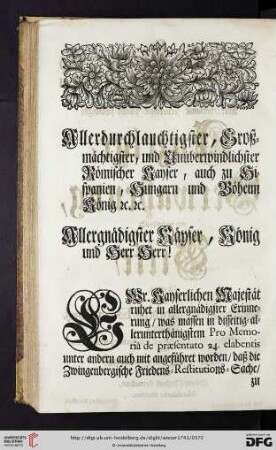 Allerdurchlauchtigster, Groß-
mächtigster, und Unüberwindlichster
Römischer Kayser, auch zu Hi-
spanien, Hungarn und Böheim
König ꝛc. ꝛc.
Allergnädigster Käyser, König
und Herr Herr!
EWr. Kayserlichen Majestät
ruhet in allergnädigster Erinne-
rung, was massen in disseitig-al-
lerunterthänigstem Pro Memo-
riâ de præsentato 24. elabentis
unter andern auch mit angeführet worden, daß die
Zwingenbergische Friedens-Restitutions-Sache,
zu
http://digi.ub.uni-heidelberg.de/diglit/wieser1741/0172
© Universitätsbibliothek Heidelberg